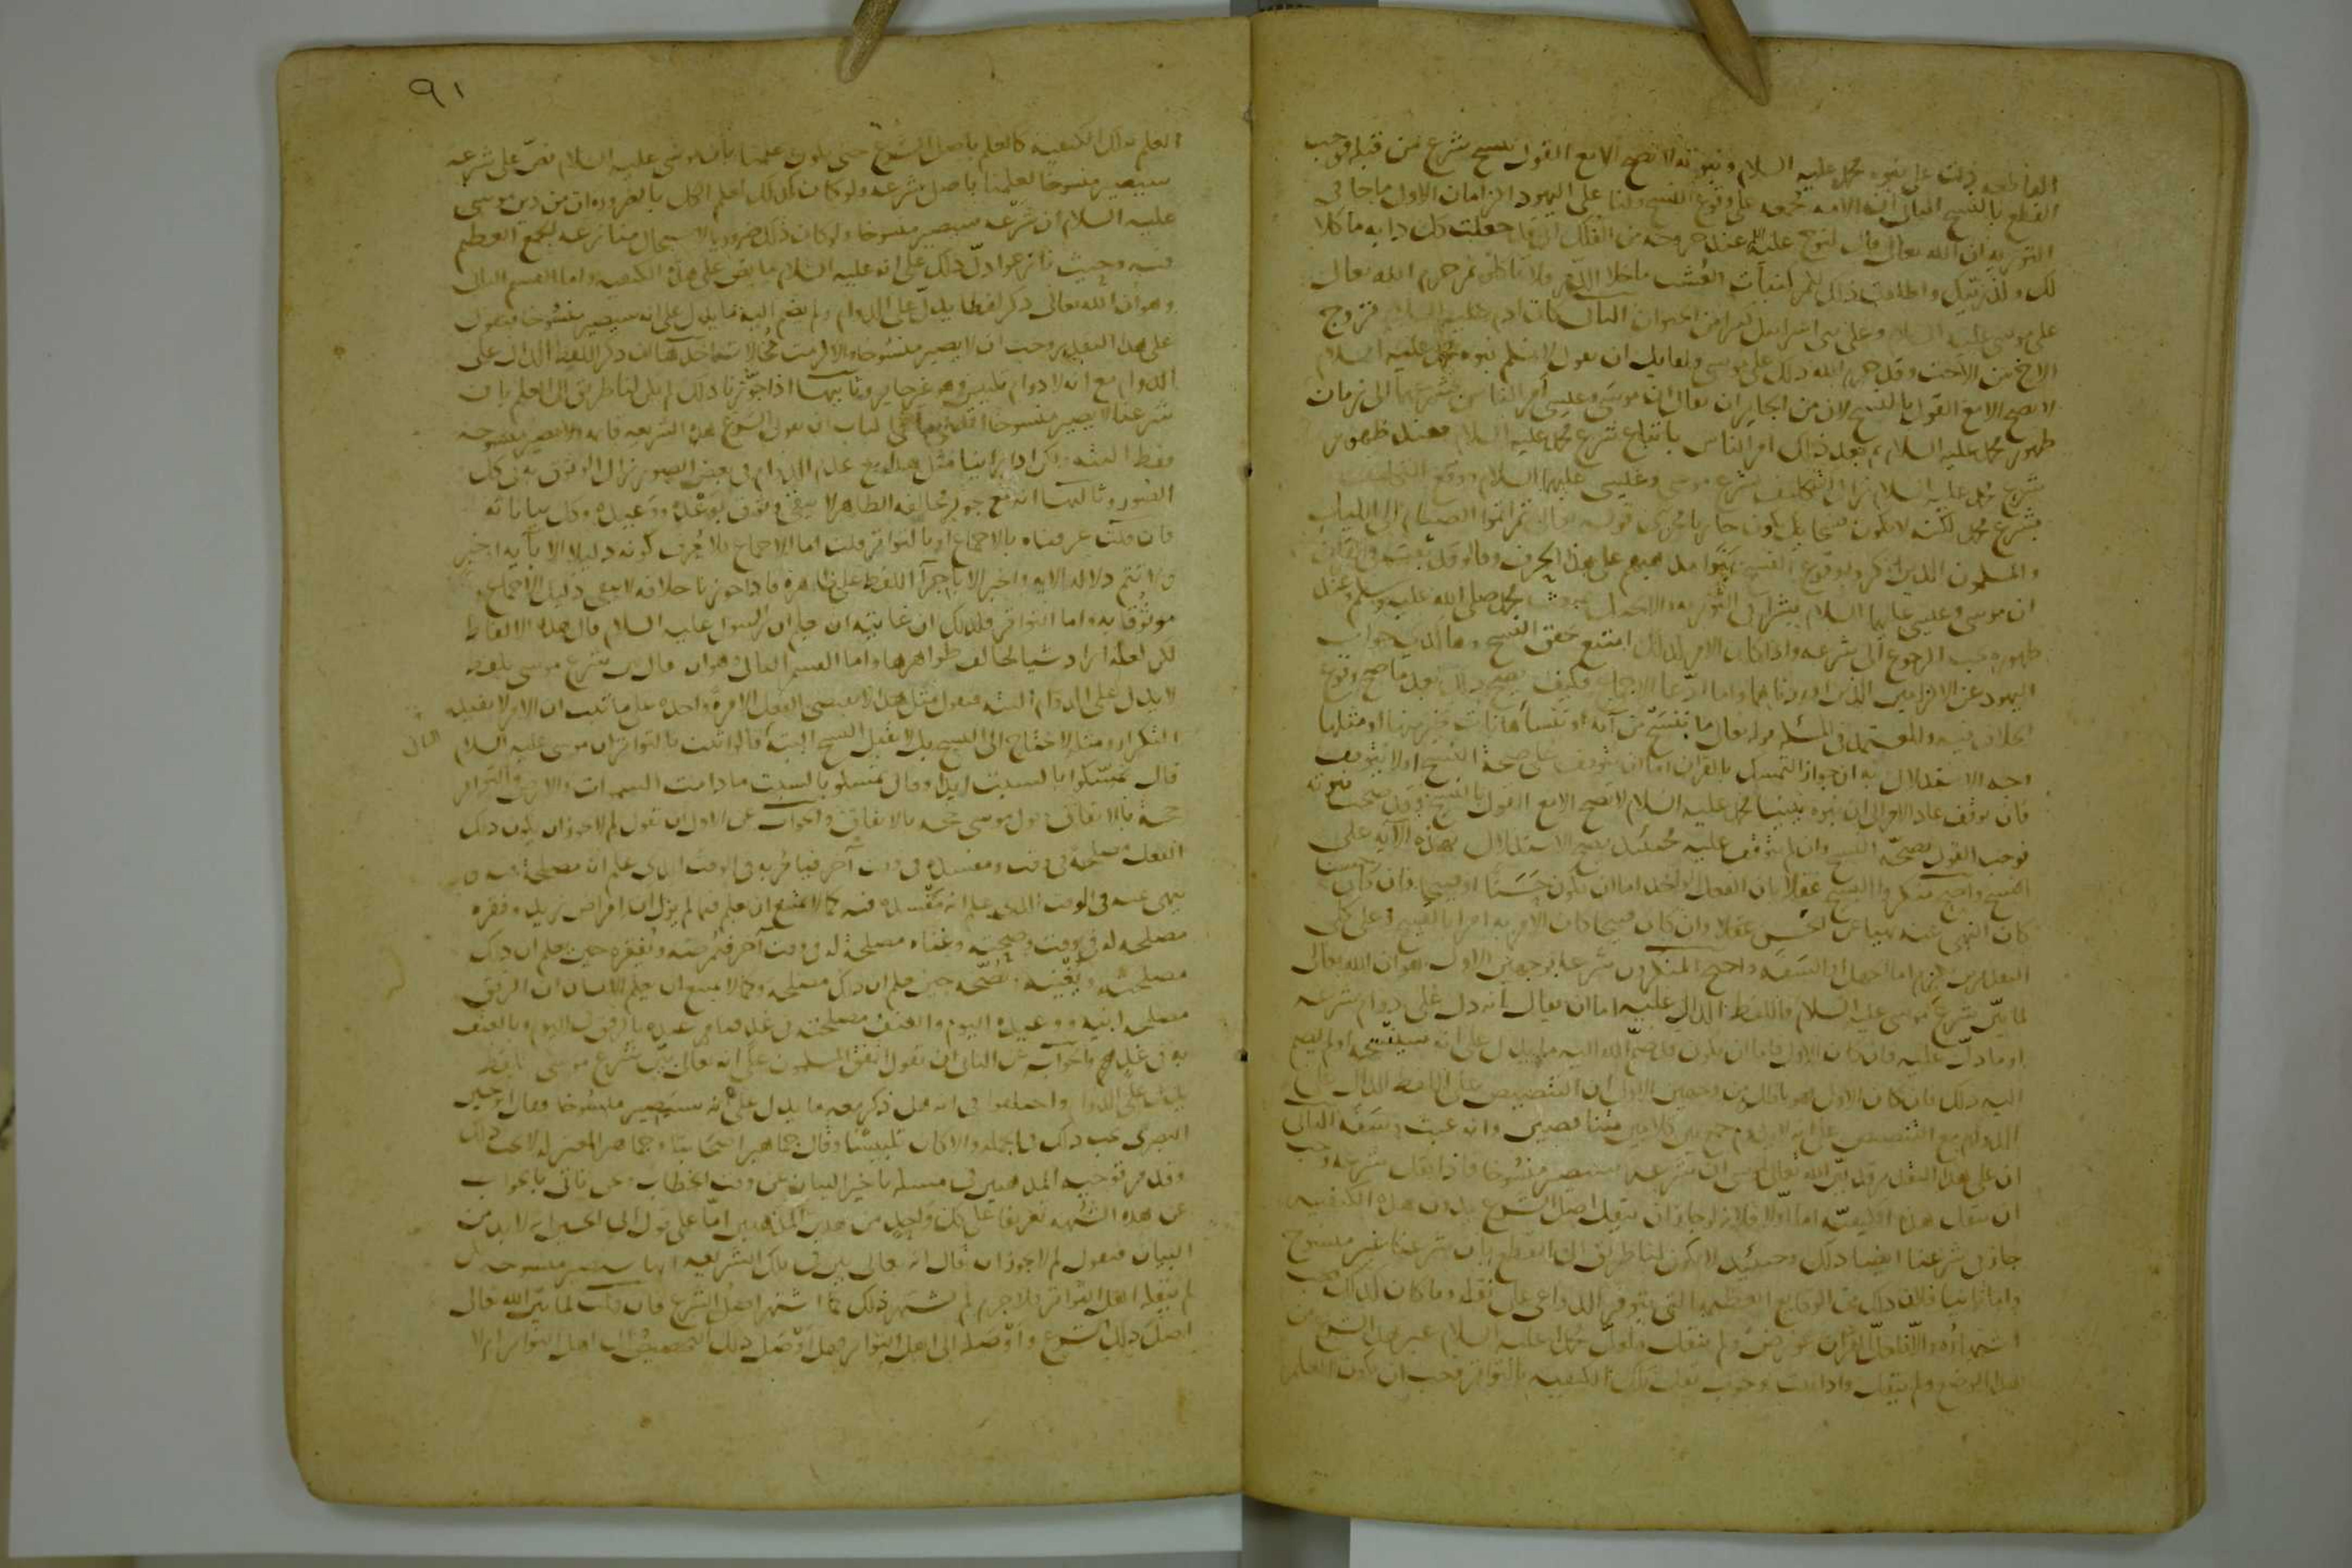 القاطعه دلت على نبوه محمد عليه السلام ونبوته لا تصح الا مع القول بنسخ شرع من قبله فوجب
القطع بالنسخ الثانى ان الامه مجمعه على وقوع النسخ ولنا على اليهود الزامان الاول ما جا فى
التوريه ان الله تعالى قال لنوح عليه عند خروجه من الفلك انى قد جعلت كل دابه ماكلا
لك ولذريتك واطلقت ذلك لكم كنبات العشب ما خلا الدم فلا تاكلوه ثم حرم الله تعالى
على موسى عليه السلام وعلى بنى اسرائيل كثيرا من الحيوان الثانى كان ادم عليه السلام يزوج
الاخ من الاخت وقد حرم الله ذلك على موسى ولقايل ان يقول لا نسلم نبوه محمد عليه السلام
لا تصح الا مع القول بالنسخ لان من الجايز ان يقال ان موسى وعيسى امرا الناس بشرعهما الى زمان
ظهور محمد عليه السلام ثم بعد ذلك امر الناس باتباع شرع محمد عليه السلام فعند ظهور
شرع محمد عليه السلام زال التكليف بشرع موسى وعيسى عليهما السلام ووقع التكليف
بشرع محمد لكنه لا يكون نسخا بل يكون جاريا مجرى قوله تعالى ثم اتموا الصيام الى الليل
والمسلمون الذين انكروا وقوع النسخ بنوا مذهبهم على هذا الحرف وقالوا قد ثبت فى القران
ان موسى وعيسى عليهما السلام بشرا فى التوريه والانجيل بمبعث محمد صلى الله عليه وسلم وعند
ظهوره يجب الرجوع الى شرعه واذا كان الامر كذلك امتنع تحقق النسخ وهاكذى جواب
اليهود عن الالزامين الذين اوردناهما واما ادعا الاجماع فكيف يصح ذلك بعد ما صح وقوع
الخلاف فيه والمعتمد فى المسله قوله تعالى ما ننسخ من آيه او ننسأها نات بخير منها او مثلها
وجه الاستدلال به ان جواز التمسك بالقران اما ان يتوقف على صحة النسخ او لا يتوقف
فان توقف عاد الامر الى ان نبوه نبينا محمد عليه السلام لا تصح الا مع القول بالنسخ وقد صحت نبوته
فوجب القول بصحة النسخ وان لم يتوقف عليه فحينئذ يصح الاستدلال بهذه الآيه على
النسخ واحتج منكروا النسخ عقلا بان الفعل الواحد اما ان يكون حسنا او قبيحا فان كان حسنا
كان النهى عنه نهيا عن الحسن عقلا وان كان قبيحا كان الامر به امرا بالقبيح وعلى كلى
التقديرين يلزم اما الجهل او السفه واحتج المنكرون شرعا بوجهين الاول هو ان الله تعالى
لما بين شرع موسى عليه السلام فاللفظ الدال عليه اما ان يقال بانه دل على دوام شرعه
او ما دل عليه فان كان الاول فاما ان يكون قد ضم الله اليه ما يدل على انه سينسخه او لم يضم
اليه ذلك فان كان الاول فهو باطل من وجهين الاول ان التنصيص على اللفظ الدال على
الدوام مع التنصيص على انه لا يدوم جمع بين كلامين متناقضين وانه عبث وسفه الثانى
ان على هذا التقدير قد بين الله تعالى لموسى ان شرعه سيصير منسوخا فاذا نقل شرعه وجب
ان تنقل هذه الكيفيه اما اولا فلانه لو جاز ان ينقل اصل الشرع بدون هذه الكيفيه
جاز فى شرعنا ايضا ذلك وحينئذ لا يكون لنا طريق الى القطع بان شرعنا غير منسوخ
واما ثانيا فلان ذلك من الوقايع العظيمه التى تتوفر الدواعى على نقله وما كان كذلك يجب
اشتهاره والا فلعل القران عورض ولم ينقل ولعل محمدا عليه السلام غير هذا الشرع من
هذا الوضع ولم ينقل واذا ثبت وجوب نقل تلك الكيفيه بالتواتر فيجب ان يكون العلم
٩١
العلم بتلك الكيفيه كالعلم باصل الشرع حتى يكون علمنا بان موسى عليه السلام نص على شرعه
سيصير منسوخا كعلمنا باصل شرعه ولو كان كذلك لعلم الكل بالضروره ان من دين موسى
عليه السلام ان شرعه سيصير منسوخا ولو كان ذلك ضروريا لاستحال منازعه الجمع العظيم
فيه وحيث نازعوا دل ذلك على انه عليه السلام ما نص على هذه الكيفيه واما القسم الثانى
وهو ان الله تعالى ذكر لفظا يدل على الدوام ولم يضم اليه ما يدل على انه سيصير منسوخا فنقول
على هذا التقدير وجب ان لا يصير منسوخا والا لزمت محالات احدها ان ذكر اللفظ الدال على
الدوام مع انه لا دوام تلبيس وهو غير جايز وثانيها اذا جوزنا ذلك لم يكن لنا طريق الى العلم بان
شرعنا لا يصير منسوخا اقصى ما فى الباب ان يقول الشرع هذه الشريعه قايمه لا تصير منسوخه
فقط البته ولكن اذا راينا مثل هذا مع عدم الدوام فى بعض الصور زال الوثوق به فى كل
الصور وثالثها انه مع تجويز مخالفه الظاهر لا يبقى وثوق بوعده ووعيده وكل بياناته
فان قلت عرفناه بالاجماع او بالتواتر قلت اما الاجماع فلا يعرف كونه دليلا الا بآيه او خبر
ولا تتم دلاله الايه والخبر الا باجرآ اللفظ على ظاهره فاذا جوزنا خلافه لا يبقى دليل الاجماع
موثوقا به واما التواتر فكذلك ان غايته ان يعلم ان الرسول عليه السلام قال هذه الالفاظ
لكن لعله اراد شيا يخالف ظواهرها واما القسم الثالث وهو ان يقال بين شرع موسى بلفظ
لا يدل على الدوام البته فنقول مثل هذا لا يقتضى الفعل الا مرة واحده على ما ثبت ان الامر لا يفيد
التكرار ومثله لا يحتاج الى النسخ بل لا يقبل النسخ البتة قالوا ثبت بالتواتر ان موسى عليه السلام
الثانى
قال تمسكوا بالسبت ابدا وقال تمسكوا بالسبت ما دامت السموات والارض والتواتر
حجة بالاتفاق وقول موسى حجه بالاتفاق والجواب عن الاول ان نقول لم لا يجوز ان يكون ذلك
الفعل مصلحة فى وقت ومفسده فى وقت آخر فيامر به فى الوقت الذى علم انه مصلحة فيه و
ينهى عنه فى الوقت الذى علم انه مفسده فيه كما لا يمتنع ان يعلم فيما لم يزل ان امراض زيد وفقره
مصلحه له فى وقت وصحته وغناه مصلحة له فى وقت آخر فيمرضه ويفقره حين علم ان ذلك
مصلحته ويغنيه ويصحه حين علم ان ذلك مصلحه وكما لا يمتنع ان يعلم الانسان ان الرفق
مصلحه ابنه وعبيده اليوم والعنف مصلحته فى غد فيامر عبده بالرفق فى اليوم وبالعنف
به فى غد والجواب عن الثانى ان نقول اتفق المسلمون على انه تعالى بين شرع موسى بلفظ
يدل على الدوام واختلفوا فى انه هل ذكر معه ما يدل على انه سيصير منسوخا فقال ابو الحسين
البصرى يجب ذلك فى الجمله والا كان تلبيسا وقال جماهير اصحابنا وجماهير المعتزله لا يجب ذلك
وقد مر توجيه المذهبين فى مسله تاخير البيان عن وقت الخطاب ونحن ناتى بالجواب
عن هذه الشبهه تفريعا على كل واحد من هذين المذهبين اما على قول ابى الحسين انه لا بد من
البيان فنقول لم لا يجوز ان يقال انه تعالى بين فى تلك الشريعه انها ستصير منسوخه لكن
لم ينقله اهل التواتر فلا جرم لم يشتهر ذلك كما اشتهر اصل الشرع فان قلت لما بين الله تعالى
اصل ذلك الشرع واوصله الى اهل التواتر فهل اوصل ذلك التخصيص الى اهل التواتر ام لا